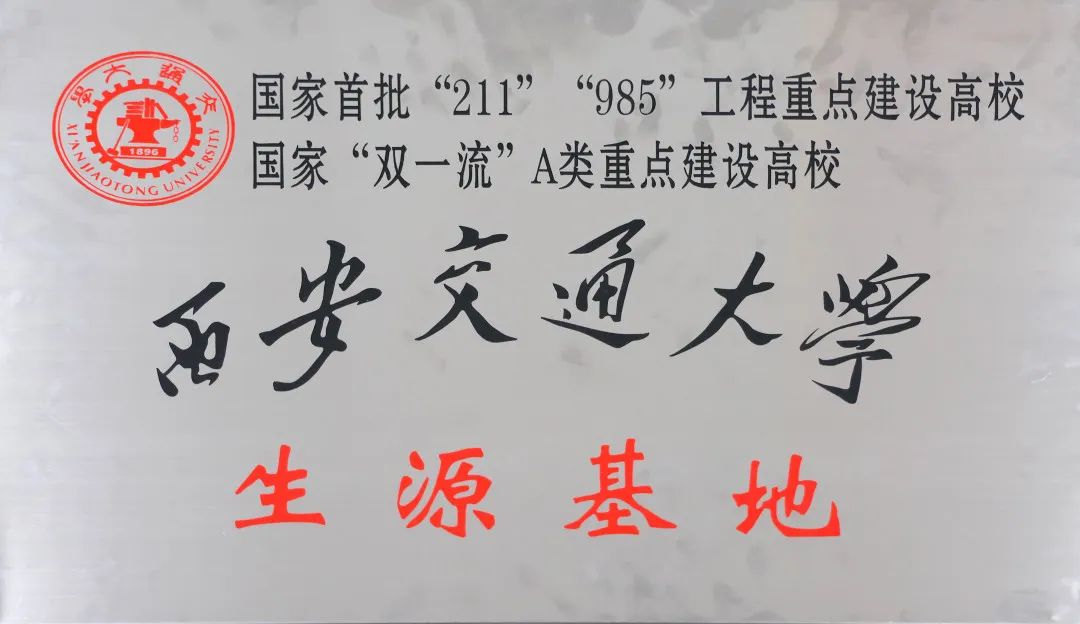 學大通交
XI'AN JIAOTONG UNIVERSITY
1896
国家首批“211”“985”工程重点建设高校
国家“双一流”A类重点建设高校
西安交通大學
生源基地